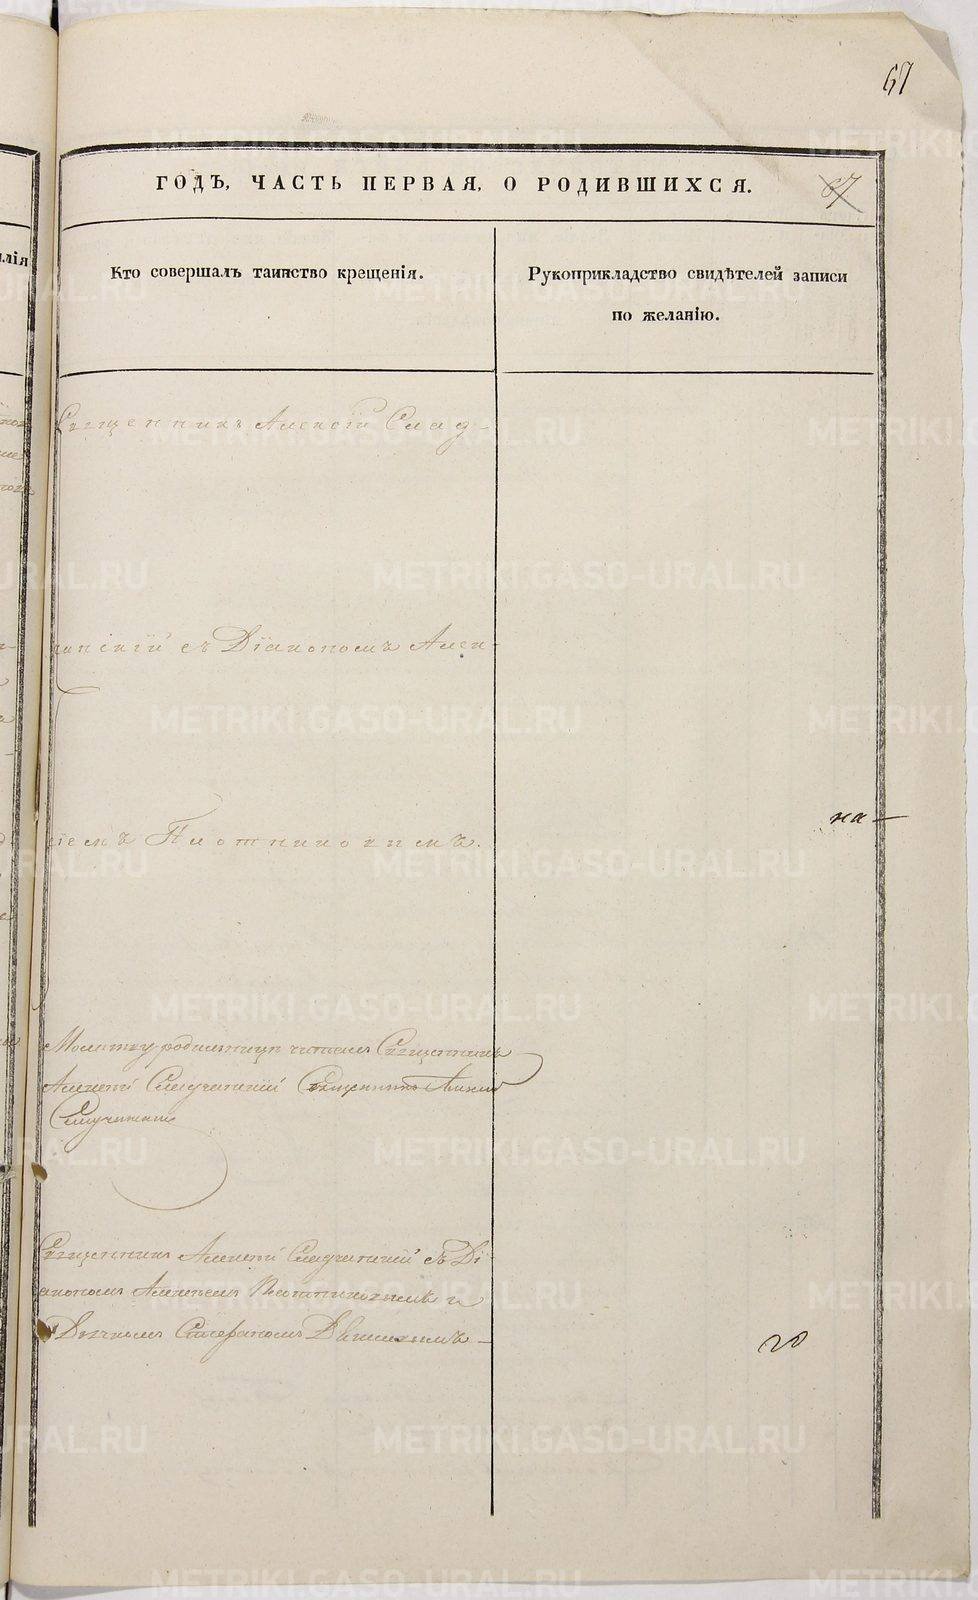 67
ГОДЪ, ЧАСТЬ ПЕРВАЯ, О РОДИВШИХСЯ.
67
Кто совершалъ таинство крещенія.
Рукоприкладство свидѣтелей записи
по желанію.
Священникъ Алексій Слад-
съ Діакономъ Алек-
сіемъ Плотниковымъ.
на-
Молитву родильницѣ читалъ Священникъ
Алексій Священникъ
Священникъ Алексій съ Ді-
акономъ Алексіемъ Плотниковымъ и
Дьячкомъ Стефаномъ
го
METRIKI.GASO-URAL.RU